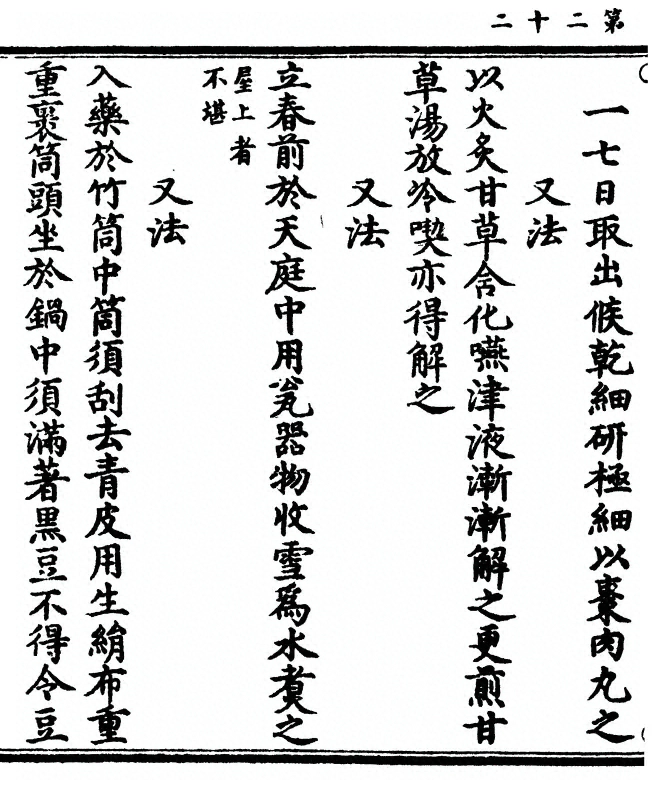 第二十二
一七日取出候乾細研極細以棗肉丸之
又法
以火炙甘草含化嚥津液漸漸解之更煎甘
草湯放冷喫亦得解之
又法
立春前於天庭中用瓮器物收雪爲水煮之
屋上者
不堪
又法
入藥於竹筒中筒須刮去青皮用生絹布重
重裹筒頭坐於鍋中須滿著黑豆不得令豆